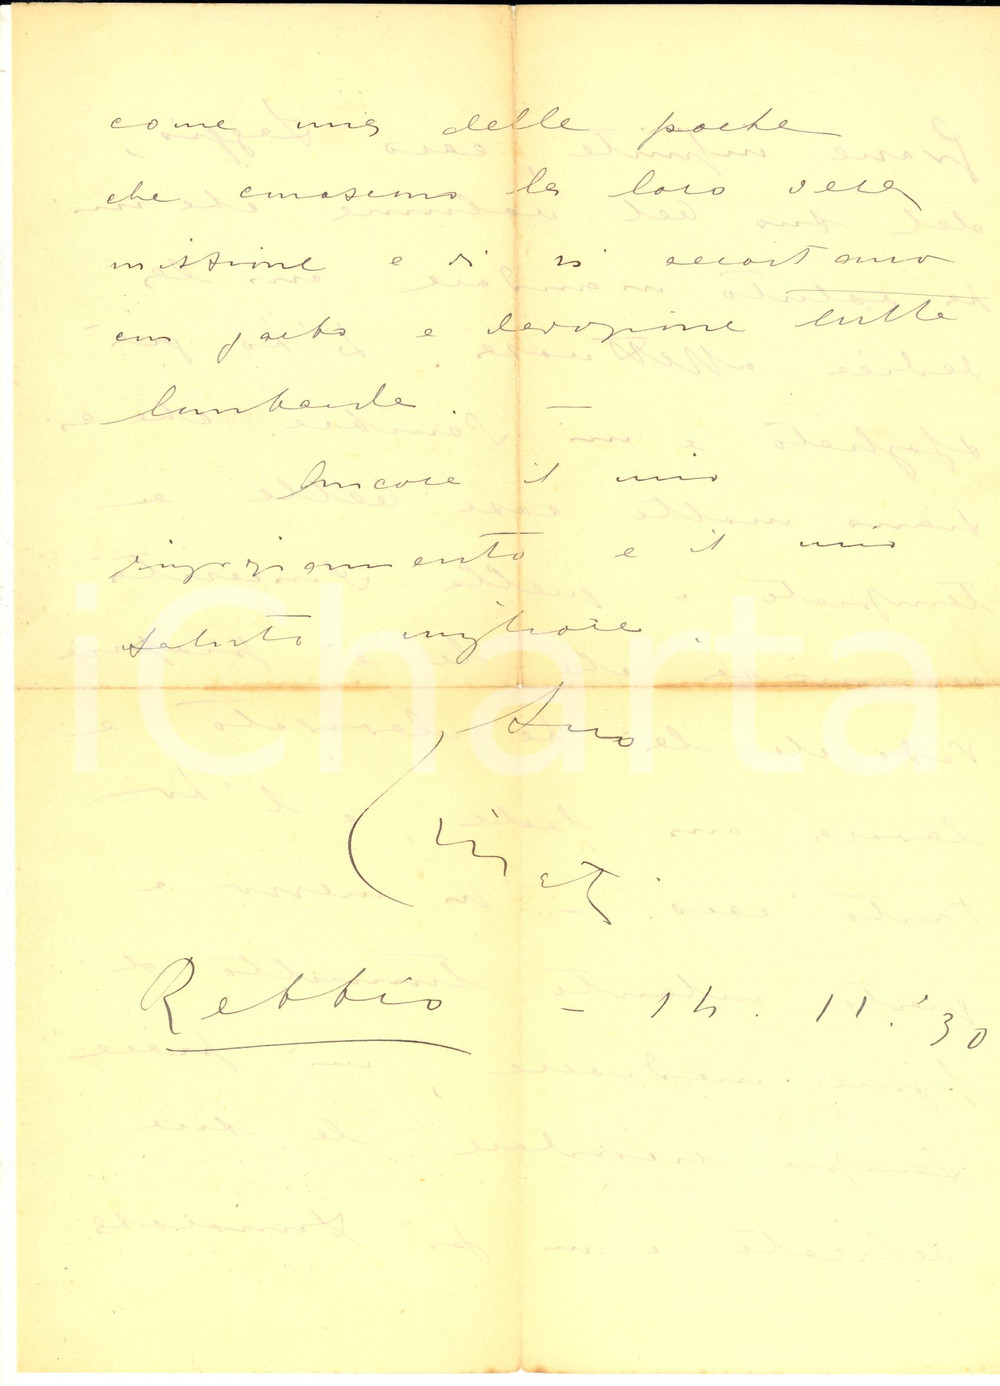 come una delle poche
che conoscono la loro vera
missione e vi si accostano
con gusto e devozione tutta
lombarda. —
Ancora il mio
ringraziamento e il mio
saluto migliore.
Suo
Rebbio - 14. 11. '30
iCharta